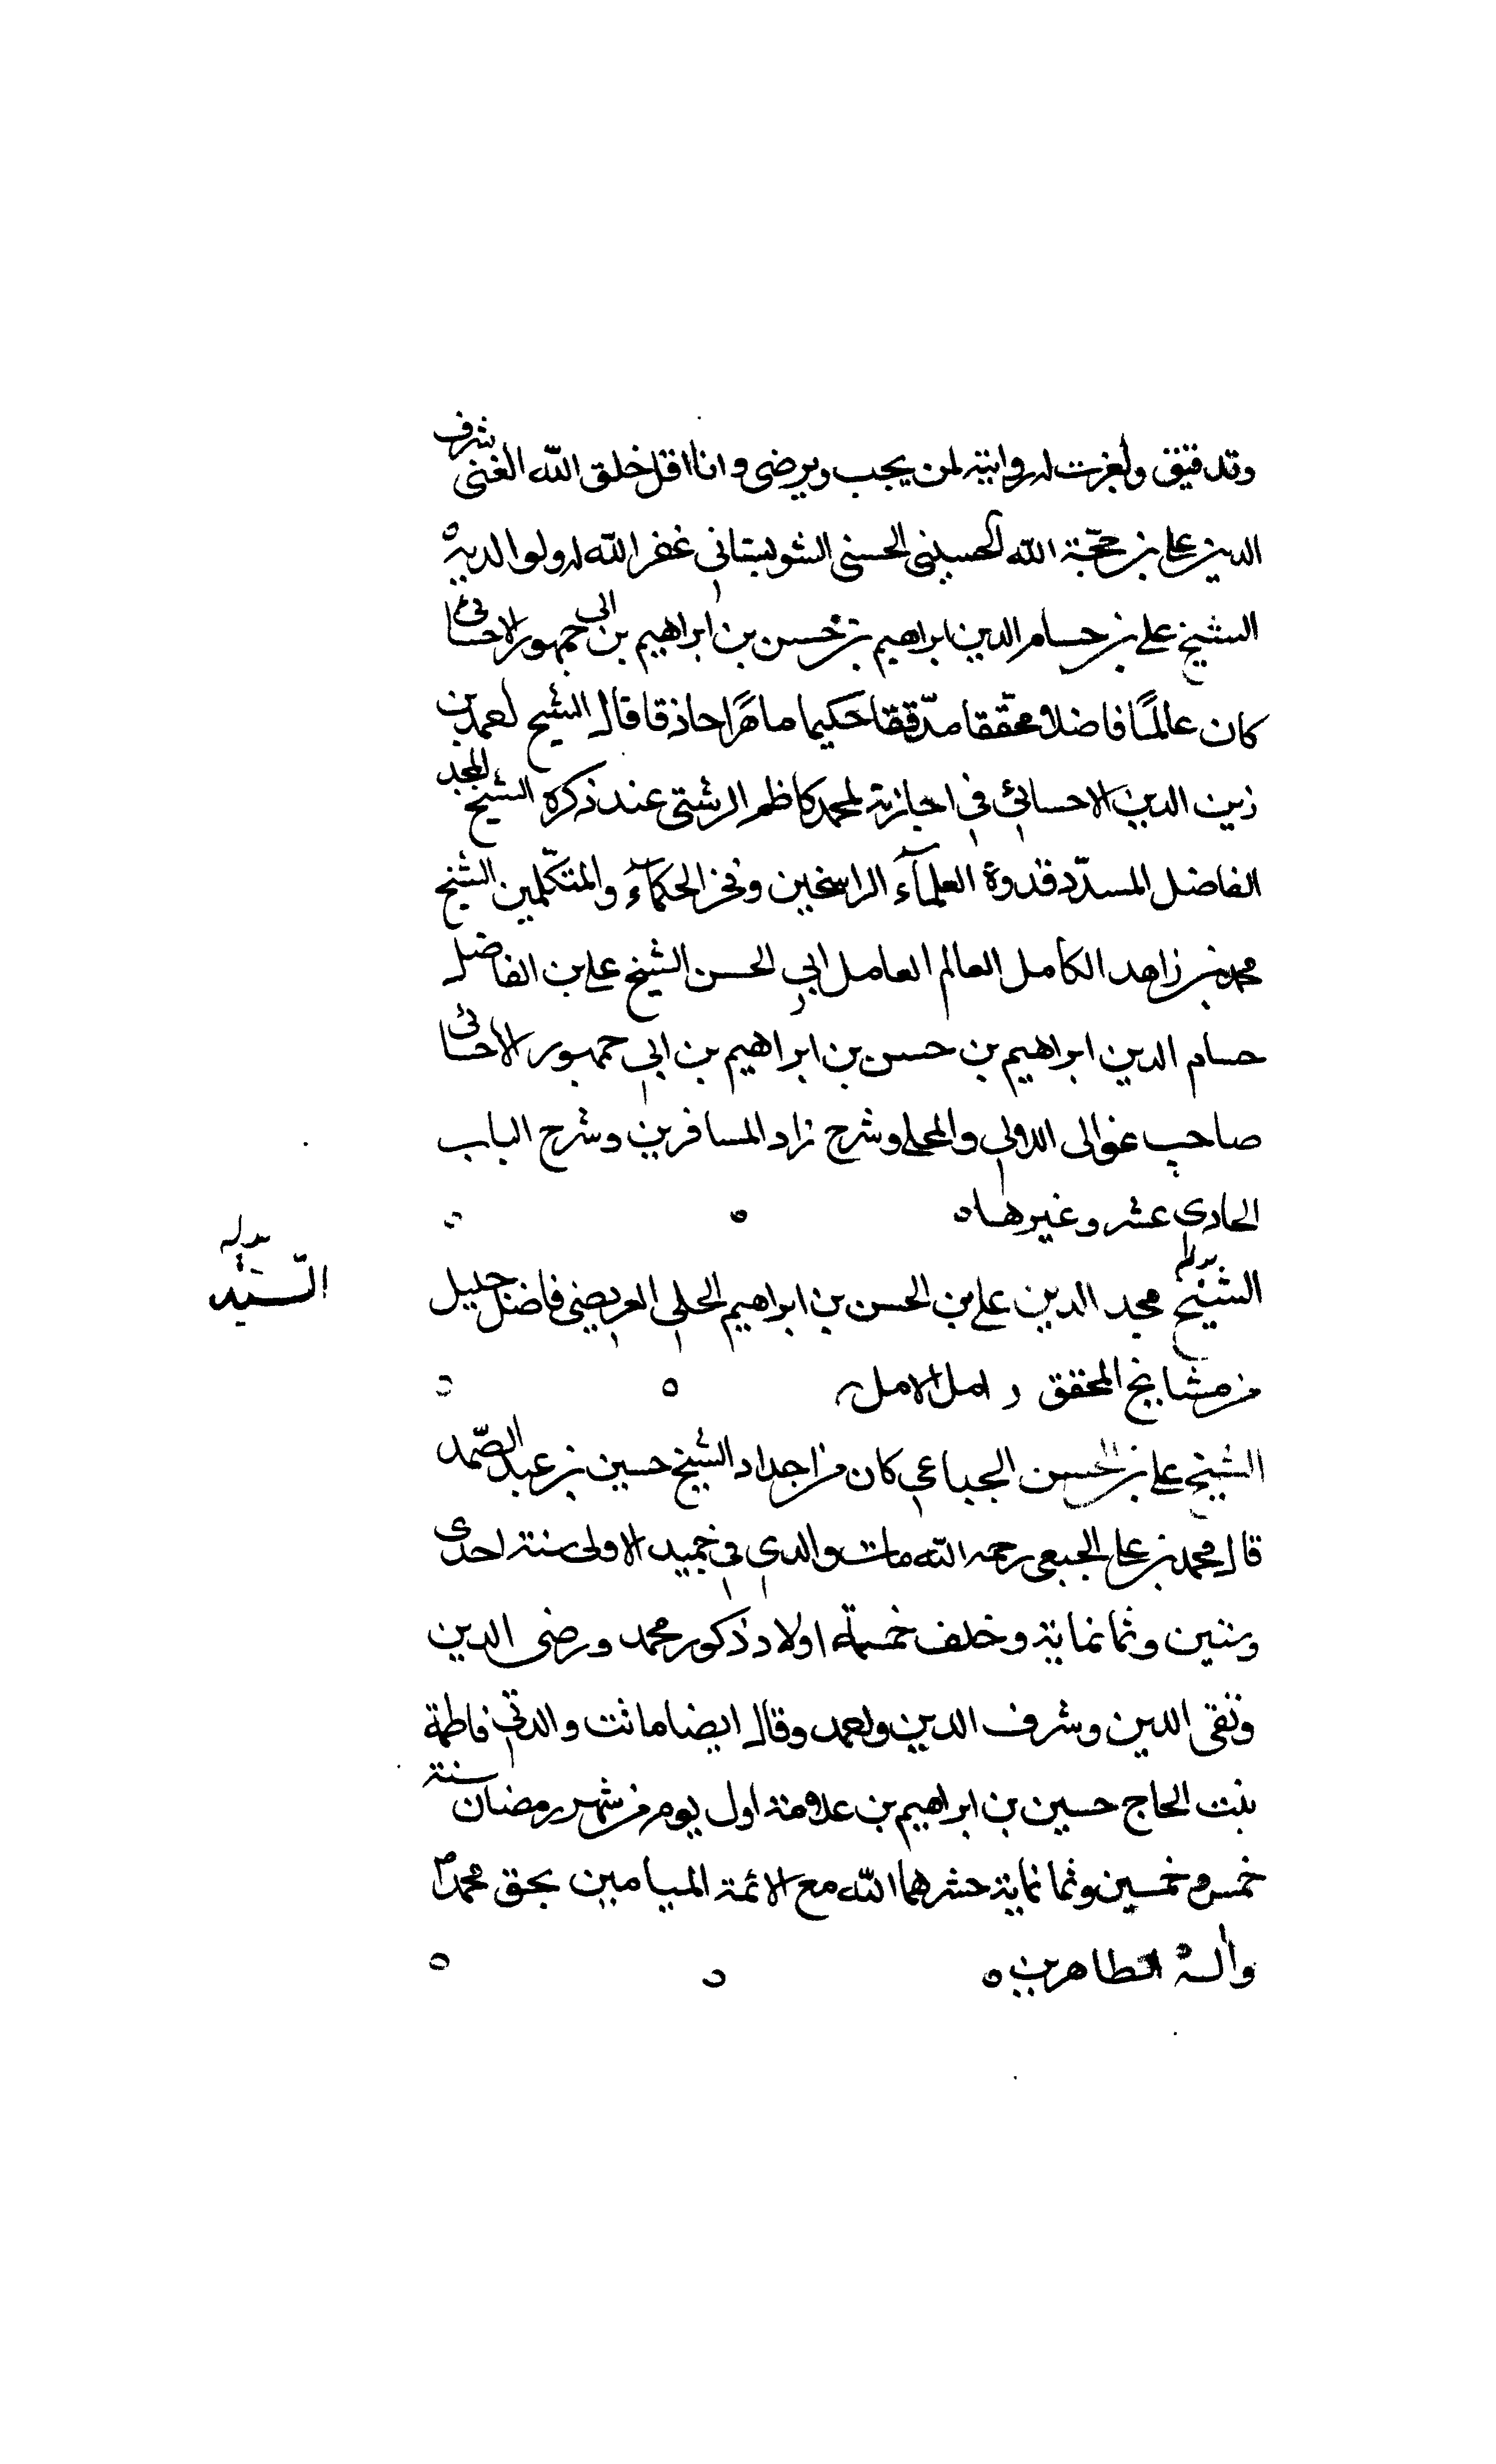 وتدقيق واجزت له روايته لمن يحب ويرضى وانا اقل خلق الله الغنى شرف
الدين على بن حجة الله الحسينى الحسنى الشولستانى غفر الله له ولوالديه
الشيخ على بن حسام الدين ابراهيم بن حسن بن ابراهيم بن ابى جمهور الاحسائى
كان عالمًا فاضلا محققا مدققا حكيما ماهرًا حاذقا قال الشيخ احمد بن
زين الدين الاحسائى فى اجازته لمحمد كاظم الرشتى عند ذكره الشيخ الامجد
الفاضل المسدّد قدوة العلمآء الراسخين وفخر الحكمآء والمتكلّمين الشيخ
محمد بن زاهد الكامل العالم العامل ابى الحسن الشيخ على بن الفاضل
حسام الدين ابراهيم بن حسن بن ابراهيم بن ابى جمهور الاحسائى
صاحب غوالى اللالى والمجلى وشرح زاد المسافرين وشرح الباب
الحادى عشر وغيرها ه
بدله
السّيد
الشيخ مجد الدين على بن الحسن بن ابراهيم الحلى العريضى فاضل جليل
من مشايخ المحقق امل الامل
الشيخ على بن الحسن الجباعى كان من اجداد الشيخ حسين بن عبد الصّمد
قال محمد بن على الجبعى رحمه الله مات والدى فى جميد الاولى سنة احدى
وستين وثمانماية وخلف خمسة اولاد ذكور محمد ورضى الدين
وتقى الدين وشرف الدين واحمد وقال ايضا ماتت والدتى فاطمة
بنت الحاج حسين بن ابراهيم بن علامة اول يوم من شهر رمضان سنة
خمس وخمسين وثمانماية حشرهما الله مع الائمة الميامين بحق محمد
واله الطاهرين ه